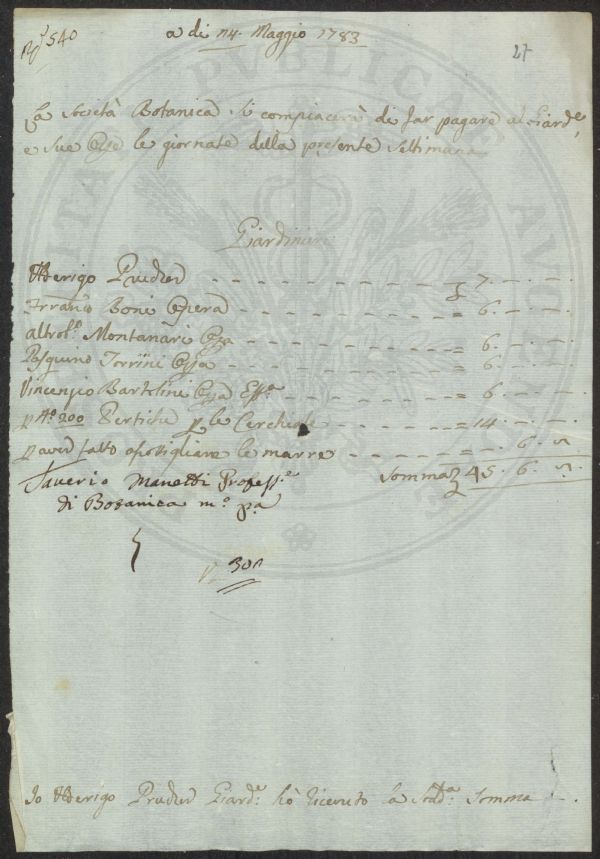 540
a di 14. Maggio 1783
27
La Società Botanica si compiacerà di far pagare al Giard.e,
e sue Opre le giornate della presente Settimana
Giardinieri
Alderigo Prucher - - - - - - - - - - 7. - . -
Franco Boni Opera - - - - - - - - - = 6. - . -
altro S.o Montanari Opa - - - - - - - - = 6. - . -
Pasquino Torrini Opa - - - - - - - - = 6. - . -
Vincenzio Bartolini Opa Ess.a - - - - - - 6. - . -
p N.o 200 Pertiche p le Cerchiate - - - - - = 14. - . -
p aver fatto le marre - - - - - - 6.
Somma 45. 6.
Saverio Manetti Profess.e
di Botanica m.o p.a
Io Alderigo Prucher Giard.e hò ricevuto la Sud.a Somma - .